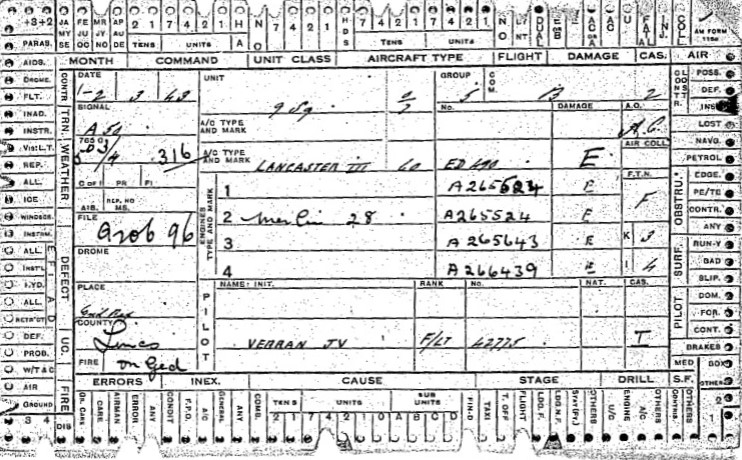 +3+2 JA FE MR AP 2 1 7 4 2 1 H N 7 4 2 1 7 4 2 1 N DUAL
PARAB. MY JU JY AU TENS UNITS A O HDS TENS UNITS O FATAL INJ. COLL AM FORM
SE OC NO DE
MONTH COMMAND UNIT CLASS AIRCRAFT TYPE FLIGHT DAMAGE CAS. AIR
AIDS. DATE UNIT GROUP COM. POSS.
DROME. 1-2 3 43 9 Sq. 5 13 2 DEF.
FLT. CONTR. SIGNAL A/C TYPE AND MARK No. DAMAGE A.O. CONSTR.
INAD. TRN. A 50 A.C. LOST
INSTR. 765 C AIR COLL NAVG.
VIS: L.T. WEATHER .316 A/C TYPE AND MARK LANCASTER III 60 ED 490 E PETROL
REP. C OF I PR FI 1 A265524 E F.T.N. EDGE.
ALL. AIB. REP. NO MS. F PE/TE
ICE FILE ENGINES TYPE AND MARK 2 Merlin 28 A265524 E OBSTRU. CONTR.
WINDSCR. 96 ANY
INSTRM. DEFECT 3 A265643 E K 3 RUN-Y
ALL DROME SURF. BAD
INST'L 4 A266439 E I 4 SLIP.
I.YD. PLACE PILOT NAME: INIT. RANK No. NAT. CAS. DOM.
ALL. PILOT FOR.
DEF. UC. COUNTY Lincs VERRAN JV F/LT 42775 I CONT.
PROB. BRAKES
W/T & C FIRE on Ged MED BOX
AIR ERRORS INEX. CAUSE STAGE DRILL S.F. OTHER
GROUND FIRE CARE AIRMAN ERROR ANY CONDIT F.P.O. A/C GENERAL ANY COMB. TENS UNITS SUB UNITS F-IN-D TAXI T. OFF FLIGHT LDG.F. LDG N.F. OTHERS U/C ENGINE A/C OTHERS OTHERS 2
3 4 DIS 2 1 7 4 2 1 0 A B C D 1